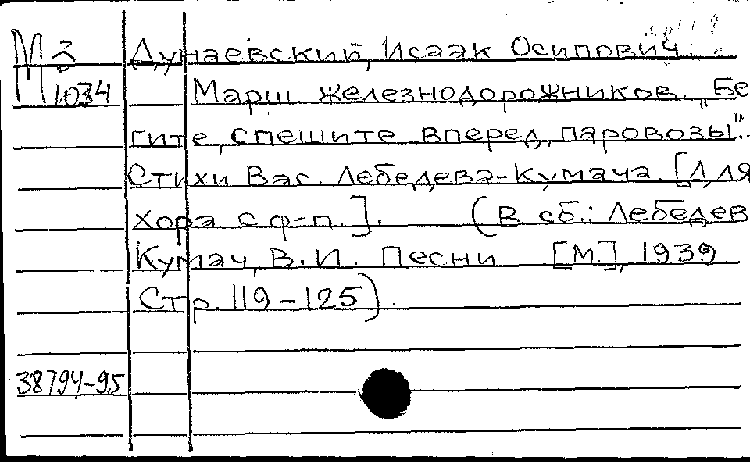 М 3 Дунаевский, Исаак Осипович
1034 Марш железнодорожников. „Бе
гите, спешите вперед, паровозы".
Стихи Вас. Лебедева-Кумача. [Для
хора с ф-п.]. (В сб.: Лебедев
Кумач, В.И. Песни [М], 1939
Стр. 119-125).
38794-95